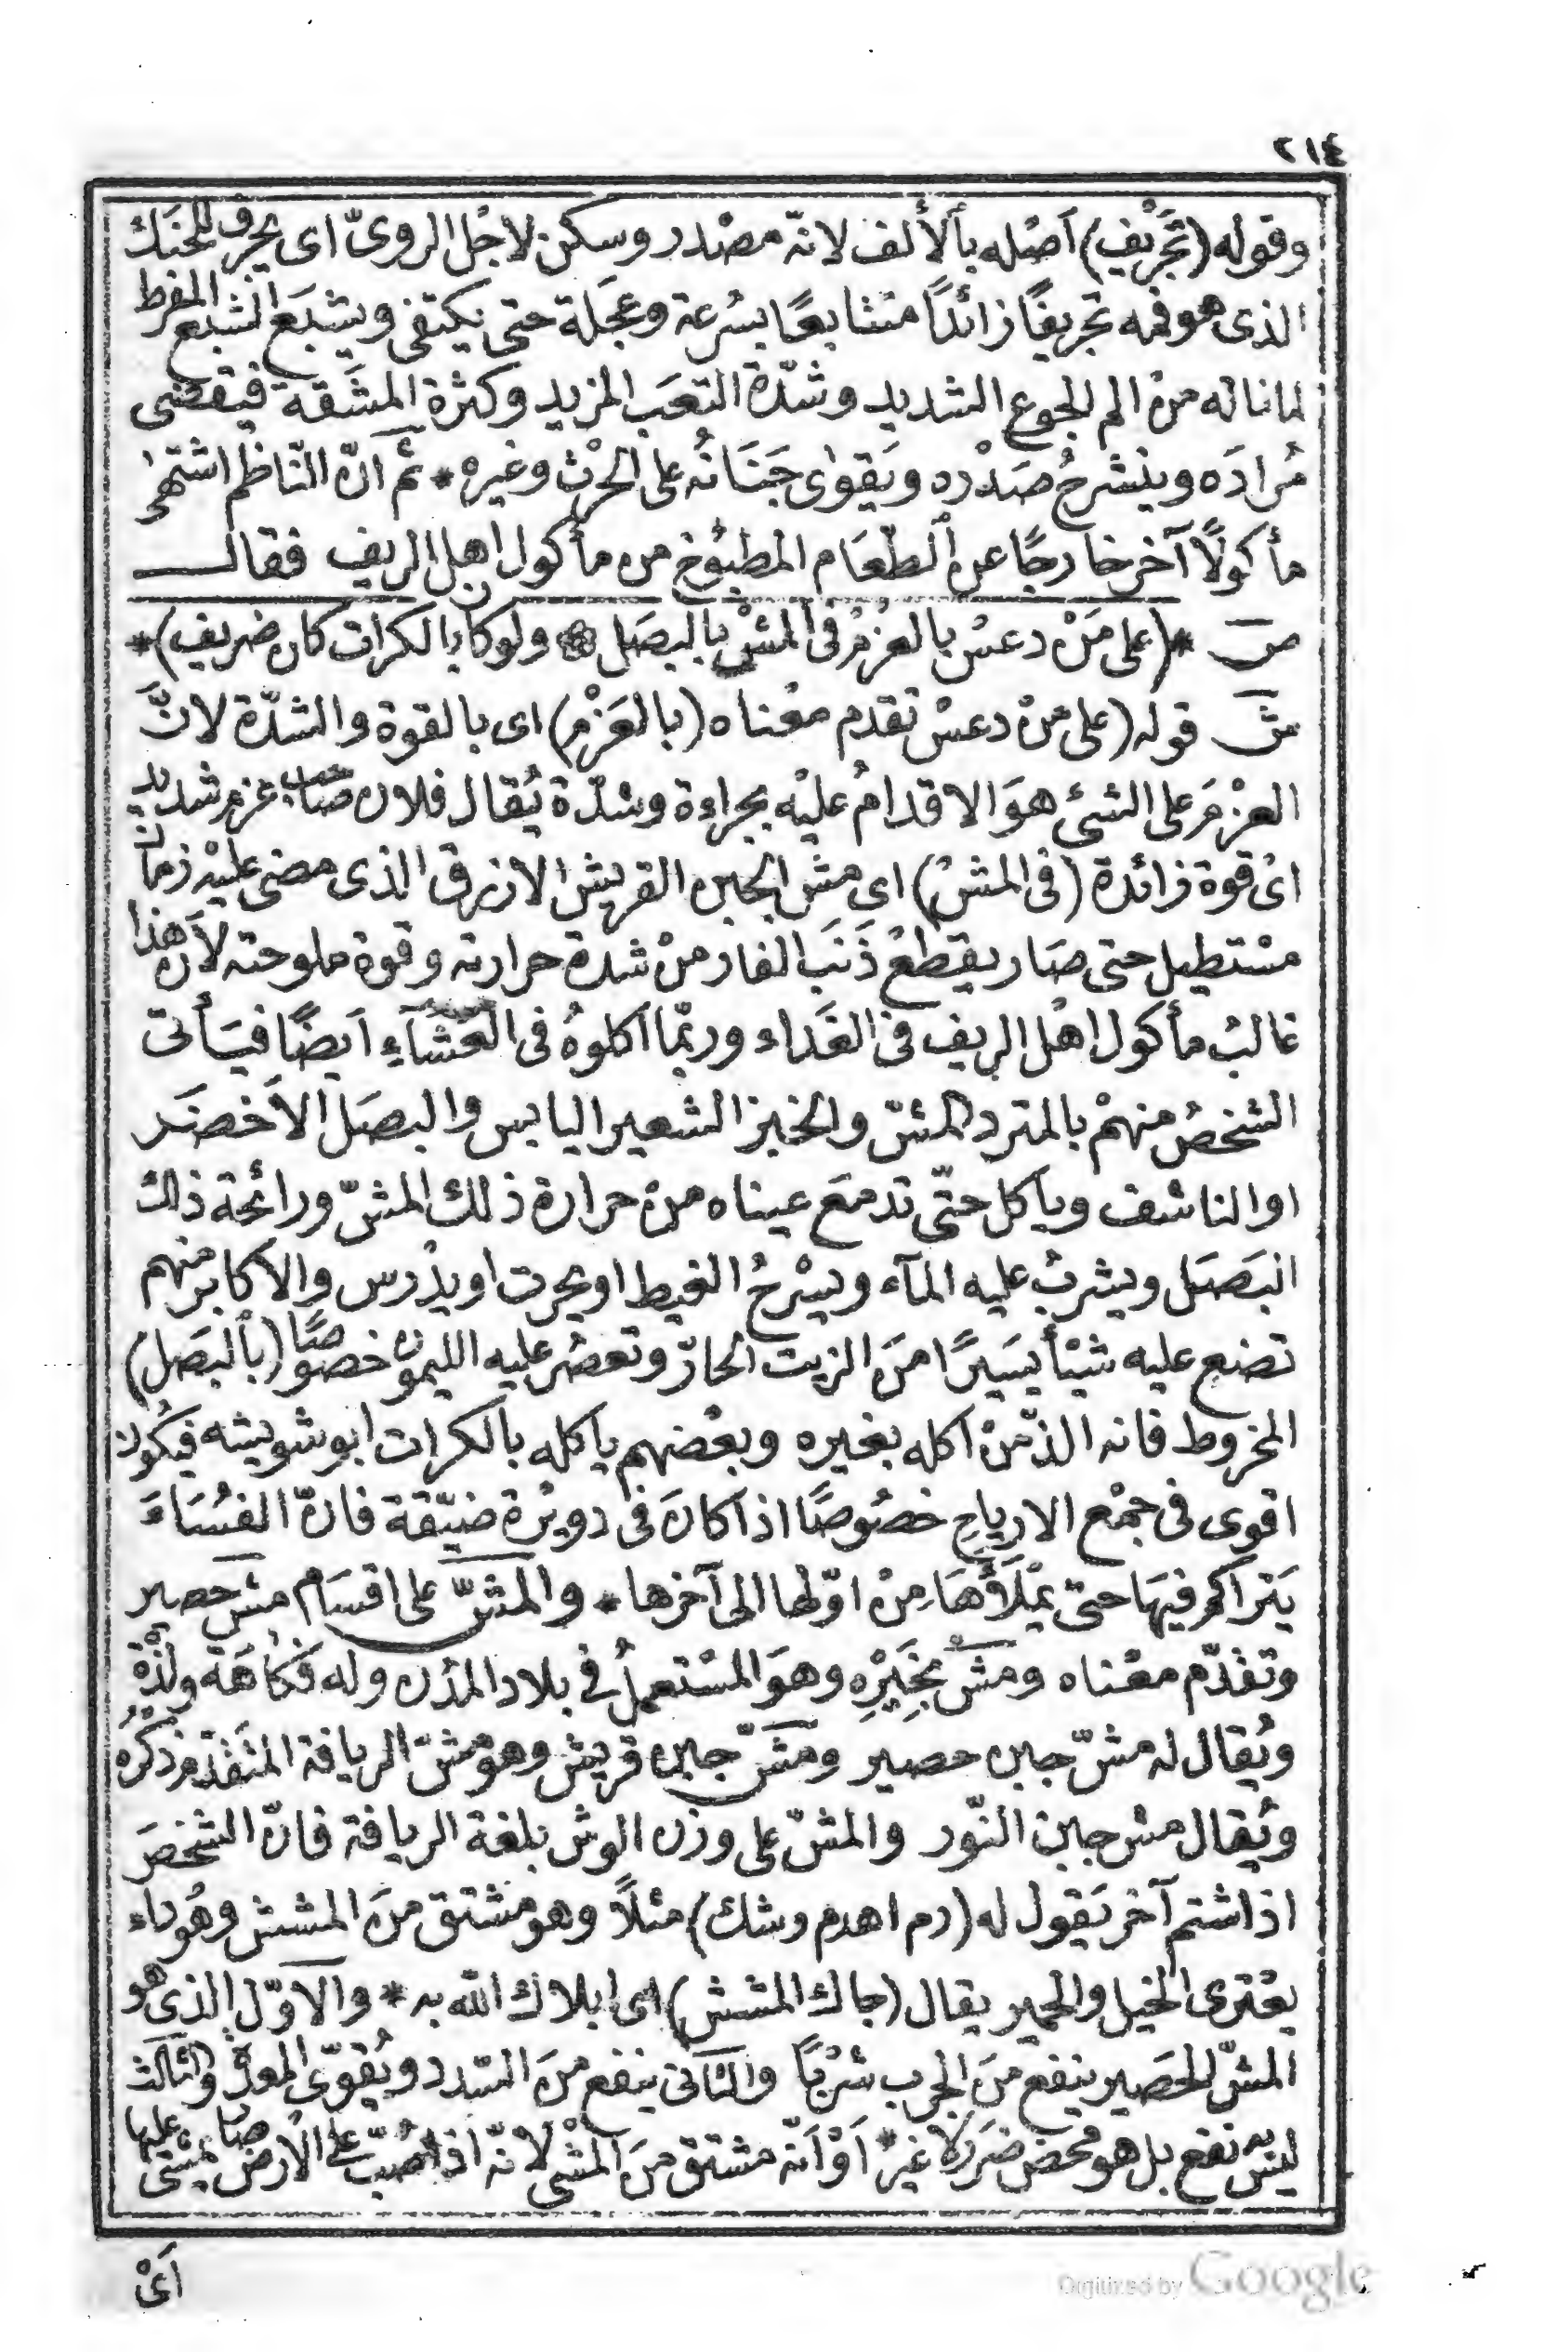 ٢١٤
وقوله (تَجْرِيْف) اَصْله بألألف لانّه مصْدر وسكن لاجْل الروىّ اى يجرف للحَنَك
الذى هو فمه تجريفًا زائدًا متتابعًا بسُرعة وعجَلة حتى يكتفى ويشبَع الشبع المفرط
لما ناله منْ الم الجوع الشديد وشدّة التعَب المزيد وكثرة المشَقة فيقضى
مُرادَه وينشرحُ صَدْره ويَقوٰى جَنَانُه على الحرْث وغيره * ثم انّ النّاظم اشتهٰى
مأكولًا آخر خارجًا عن ألطّعَام المطبوُخ من مأكول اهل الريف فقال
ص *(على مَنْ دعسْ بالعزمُ فى ألمشْ بالبصَل ۞ ولو كان بالكرات كان ضريف)*
ش قوله (على منْ دعسْ تقدم معْناه (بالعَزْم) اى بالقوة والشدّة لانَّ
العزْمَ على الشئ هوَ الاقدامُ عليْه بجراءة وشدّة يُقال فلان صَاحب عزم شديد
اىْ قوة زائدة (فى المشْ) اى مش الجبن القريش الازرق الذى مضى عليْه زمان
مسْتطيل حتى صَار يقطعُ ذَنَبَ الفار منْ شدة حرارته وقوة ملوحته لأن هذا
غالبُ مأكول اهْل الريف فى الغَداء وربمّا اكلوهُ فى العَشَآءِ اَيضًا فيَأتى
الشخصُ منهمْ بالمترد المشّ والخبز الشعير اليابس والبصَل الأخضَر
او الناشف وياكل حتّى تدمعَ عيناه منْ حرارة ذلك المشّ ورائحة ذلك
البَصَل ويشربُ عليه المآء ويسْرحُ الغيط او يحرث او يدْرس والاكابر منهم
تضع عليه شيْأً يسَيرًا منَ الزيت الحارّ وتعصُر عليه الليمون خصوصًا (بألبَصل)
المخروط فانه الذّ منْ اكله بغيره وبعْضهم ياكله بالكرات ابوشويشه فيكُون
اقوى فى جمْع الارياحِ خصُوصًا اذا كانَ فى دويْرة ضيّقة فانّ الفُسَاءَ
يَتراكم فيهَا حتىّ يمْلَأَهَا مِنْ اوّلها الى آخرها * والمشّ على اقسَام مش حصير
وتقدّم معْناه ومَشّ بِخَيْرِه وهوَ المسْتعملُ فى بلاد المدُن وله فَكاهَة ولذّة
ويُقال له مشّ جبن حصير ومَشّ جبن قريش وهو مشّ الريافة المتَقدّم ذكْرُه
ويُقال مش جبن النّور والمشّ على وزن الوش بلغة الريافة فانّ الشخصَ
اذا شتم آخر يَقول له (دم اهدم وشك) مثلًا وهو مشتق منَ المشش وهُوَ داء
يعْترى الخيل والحمير يقال (جاك المشش) اى ابلاك الله به * والاوّل الذى هو
المشّ الحَصير ينفع منَ الجرب شرْبًا والثانى ينفع منَ السّدد ويُقوّى المعدة والثالث
ليس به نفع بل هو محْض ضرَر لا غير * اَوْ اَنّه مشتق منَ المشْى لانّه اذا صُبّ على الأرض صَار يمشى عليها
اَىْ
Digitized by Google